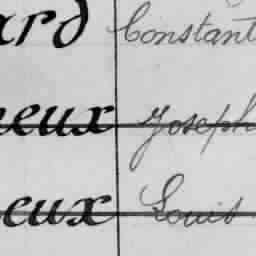 ard Constant
neux Joseph
eux Louis